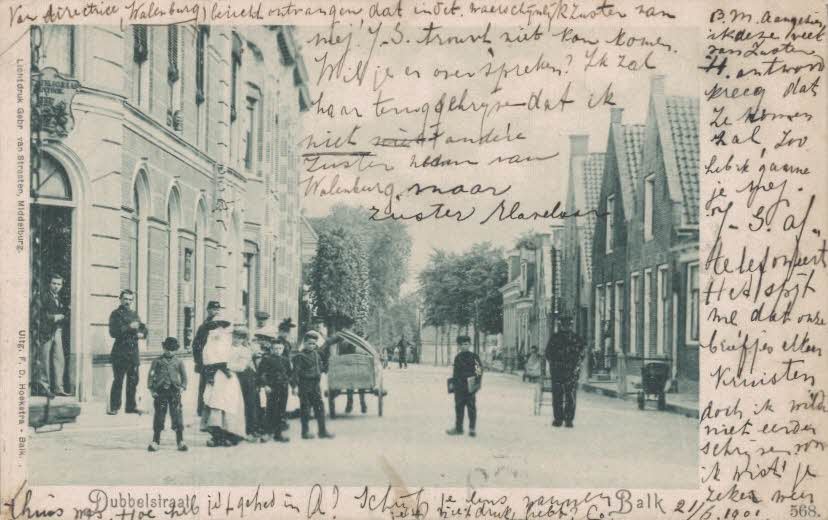 Van directrice (Walenburg) bericht ontvangen dat
zuster van
mej. J. S. trouwt niet kan komen.
Wil je er over spreken? Ik zal
haar terugschrijven dat ik
niet andere
zuster van
Walenburg, maar
Zuster
B. M. Aangezien
ik deze week
van Zuster
H. antwoord
kreeg dat
ze komen
zal, zoo
heb ik gaarne
je mej.
J. S. af-
getelefoneerd
Het spijt
me dat onze
briefjes elkaar
kruisten
doch ik wilde
niet eerder
schrijven voor
ik wist je
zeker weer
thuis was. Hoe heb je 't gehad in A? Schrijf je eens wanneer
je 't niet druk hebt? Co.
21/5 1901
Dubbelstraat
Balk
568.
Lichtdruk Gebr. van Straaten, Middelburg.
Uitg. F. D. Hoekstra - Balk.